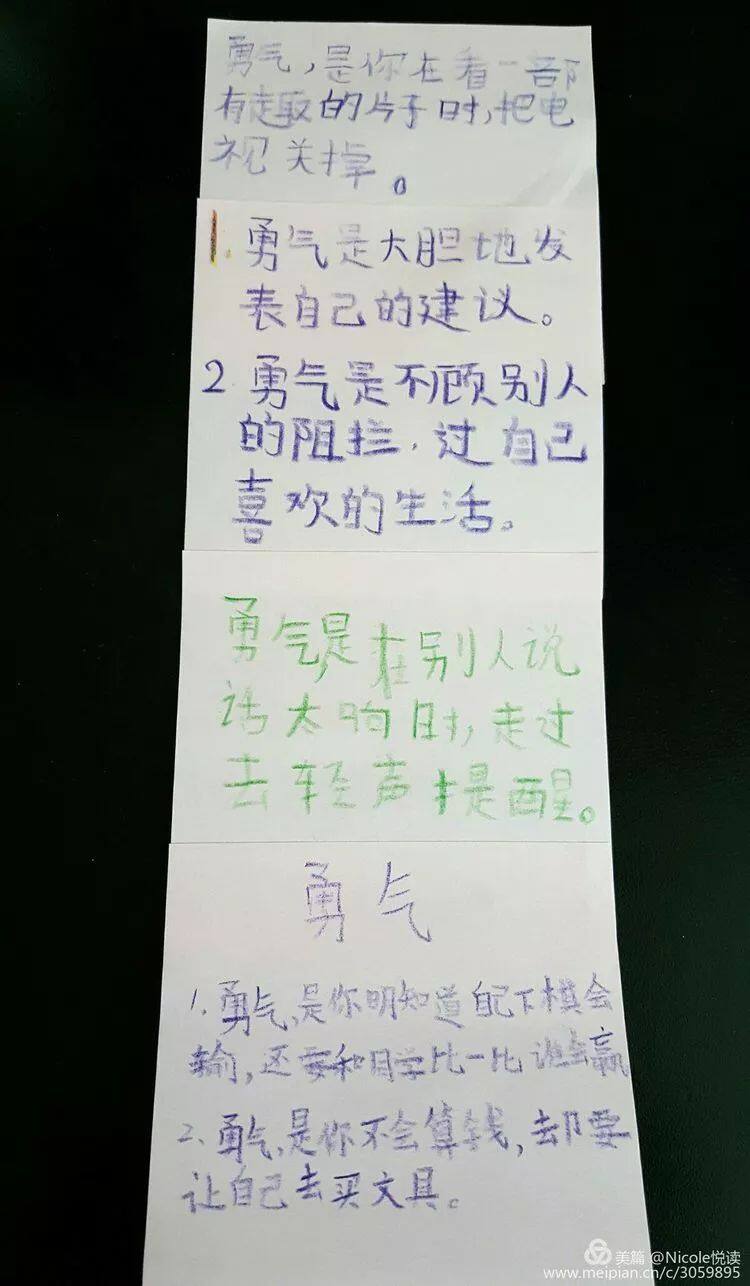 勇气，是你在看一部
有趣的片子时，把电
视关掉。
1. 勇气是大胆地发
表自己的建议。
2 勇气是不顾别人
的阻拦，过自己
喜欢的生活。
勇气，是在别人说
话太响时，走过
去轻声提醒。
勇气
1. 勇气，是你明知道自己下棋会
输，还要和同学比一比谁会赢
2. 勇气，是你不会算钱，却要
让自己去买文具。
美篇 @Nicole悦读
www.meipian.cn/c/3059895